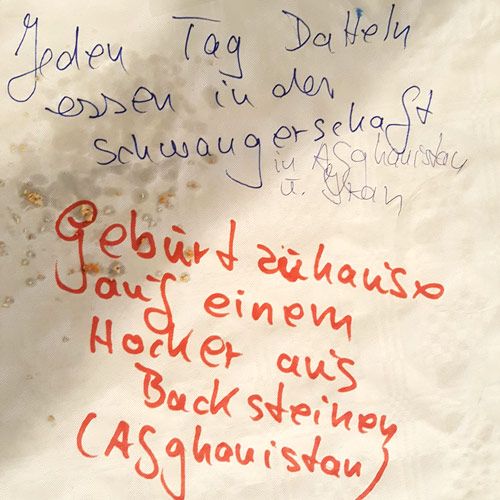 Jeden Tag Datteln
essen in der
Schwangerschaft
in Afghanistan
u. Iran
Geburt zuhause
auf einem
Hocker aus
Backsteinen
(Afghanistan)